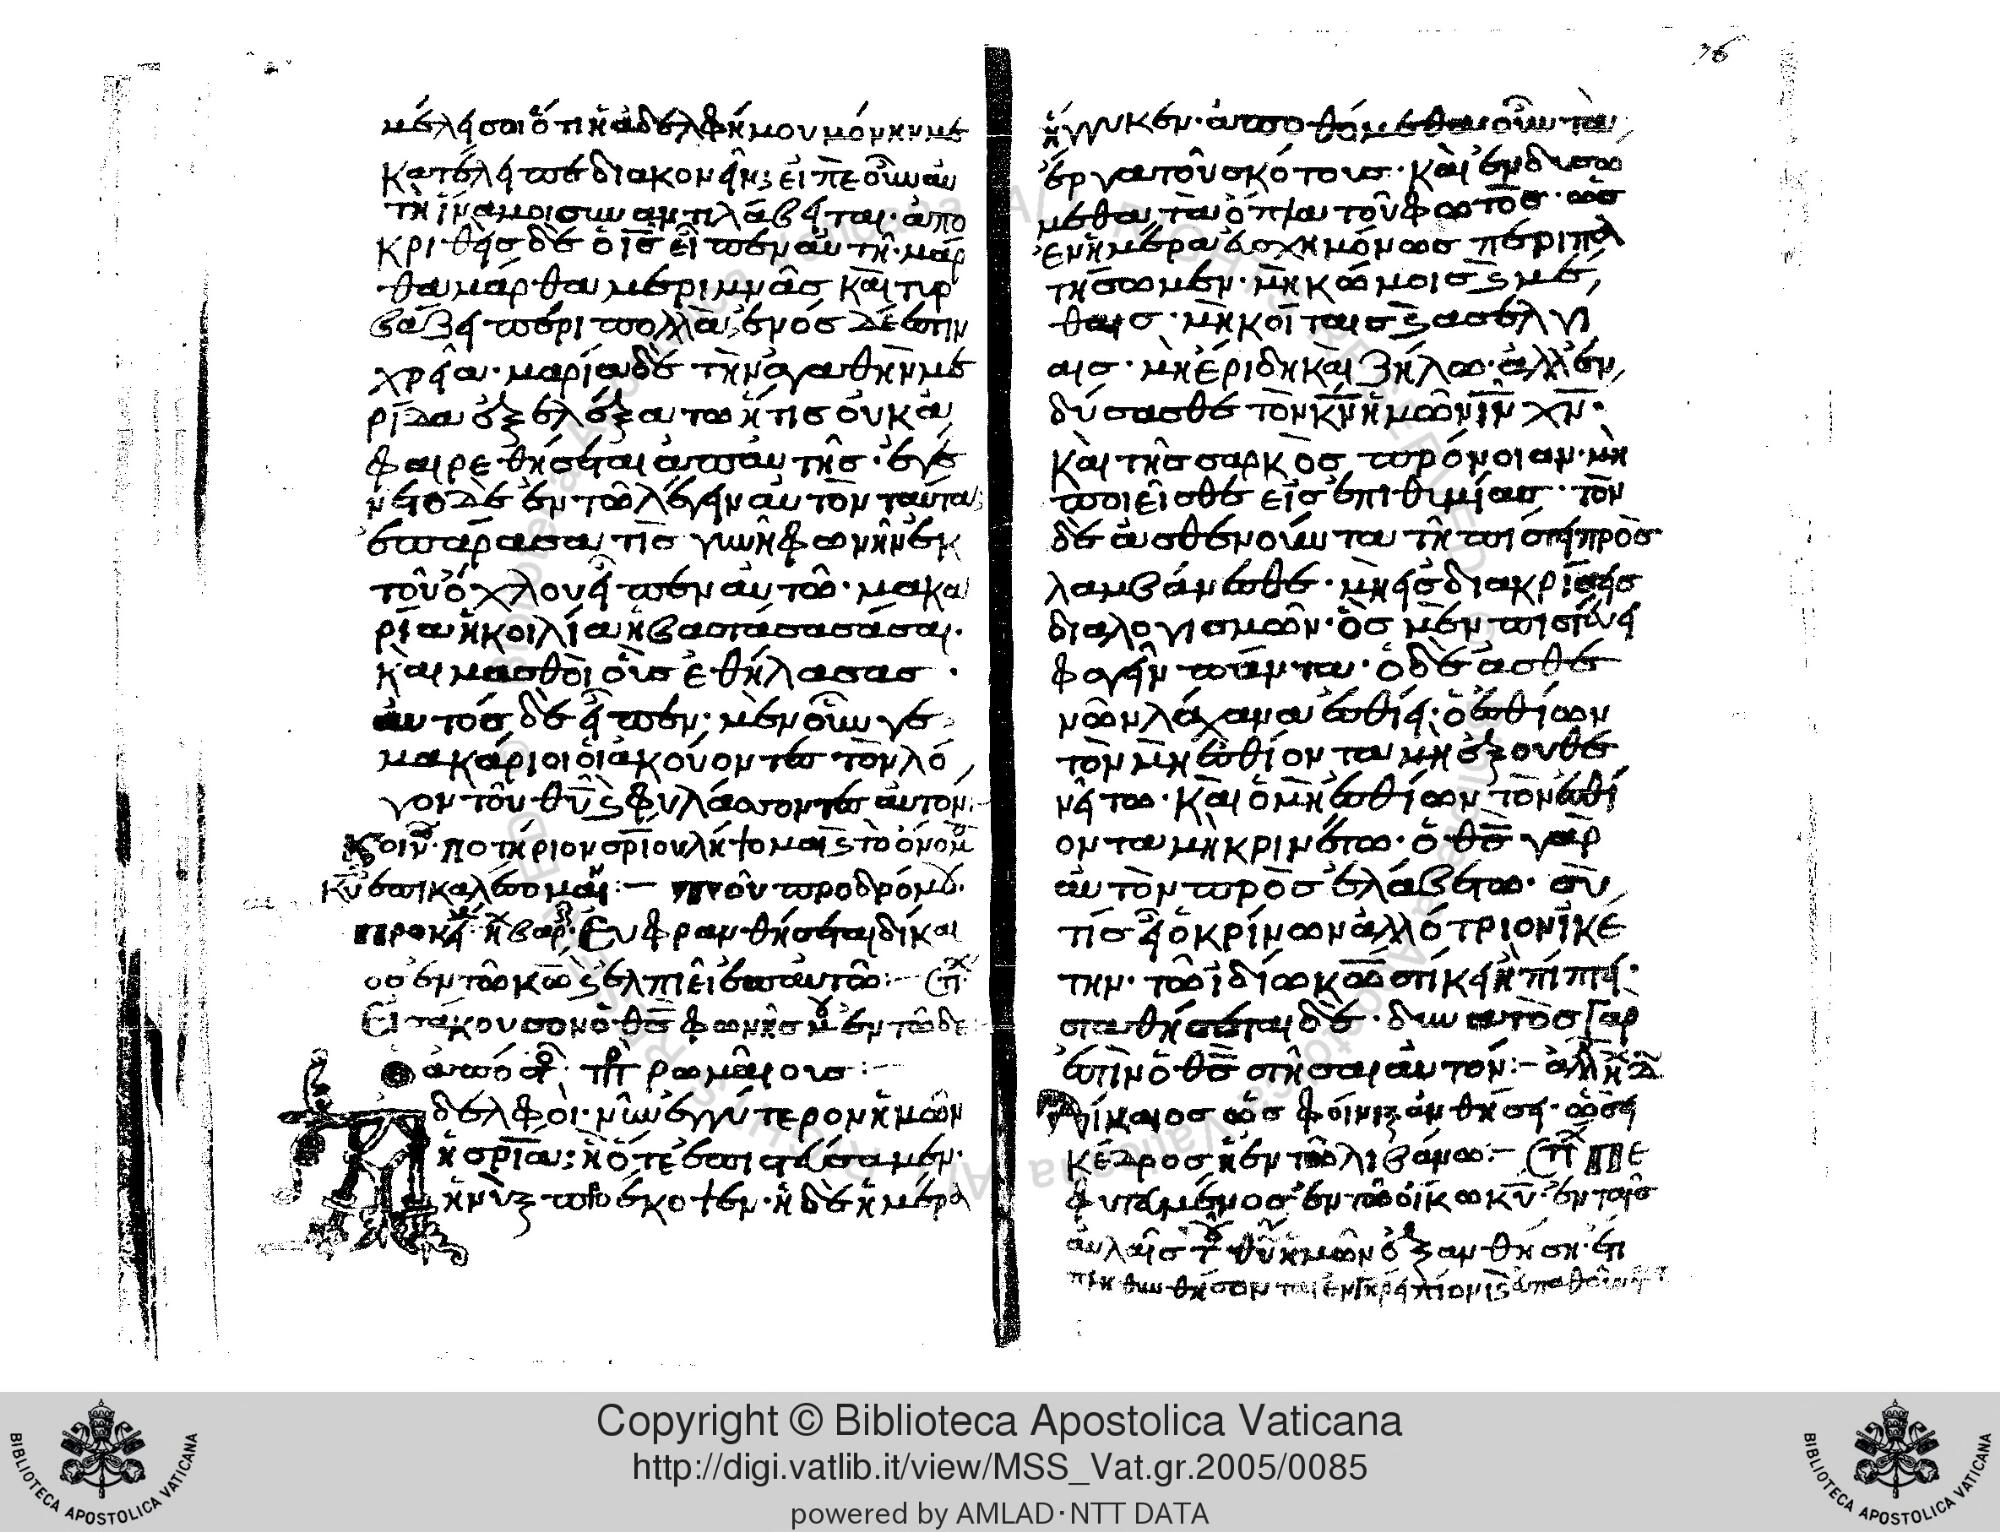 76
μέλει σοι ὅτι ἡ ἀδελφή μου μόνην με
κατέλειπε διακονεῖν; εἰπὲ οὖν αὐ
τῇ ἵνα μοι συναντιλάβηται· ἀπο
κριθεὶς δὲ ὁ ις εἶπεν αὐτῇ· μάρ
θα μάρθα μεριμνᾶς καὶ τυρ
βάζει περὶ πολλὰ, ἑνὸς δέ ἐστιν
χρεία· μαρία δὲ τὴν ἀγαθὴν με
ρίδα ἐξελέξατο ἥτις οὐκ ἀ
φαιρεθήσεται ἀπ αὐτῆς· ἐγέ
νετο δὲ ἐν τῷ λέγειν αὐτὸν ταῦτα,
ἐπάρασα τὶς γυνὴ φωνὴν ἐκ
τοῦ ὄχλου εἶπεν αὐτῷ· μακα
ρία ἡ κοιλία ἡ βαστάσασά σαι·
καὶ μασθοὶ οὓς ἐθήλασας·
αὐτὸς δὲ εἶπεν· μὲν οὖν γε
μακάριοι οἱ ἀκούοντες τὸν λό
γον τοῦ θυ καὶ φυλάσσοντες αὐτόν·
κοιν· ποτήριον σριου λήψομαι καὶ τὸ ὄνομ
κυ ἐπικαλέσομαι :— προδρόμ·
προκει· ἠ βαρ· Εὐφρανθήσεται δίκαι
ος ἐν τῷ κω καὶ ἐλπιεῖ ἐπ αυτῷ :— στιχ
Εἰσάκουσον ὁ θς φωνῆς μου ἐν τῷ δε
ὁ ἀπόστ. πρ ρωμαίους :—
Αδελφοὶ· νῦν ἐγγύτερον ἡμῶν
ἡ σρία; ἢ ὅτε ἐπιστεύσαμεν·
ἡ νὺξ προέκοψεν· ἡ δὲ ἡμέρα
ἤγγικεν· ἀποθώμεθα οὖν τὰ
ἔργα τοῦ σκότους· καὶ ἐνδυσώ
μεθα τὰ ὅπλα τοῦ φωτὸς· ὡς
ἐν ἡμέρα εὐσχημόνως περιπα
τήσωμεν· μὴ κώμοις καὶ μέ
θαις· μὴ κοίταις καὶ ἀσελγί
αις· μὴ ἔριδη καὶ ζήλω· ἀλλ ἐν
δύσασθε τὸν κν ἡμῶν ιν χν·
καὶ τῆς σαρκὸς πρόνοιαν· μὴ
ποιεῖσθε εἰς ἐπιθυμίας· τὸν
δὲ ἀσθενοῦντα τῇ πίστει προσ
λαμβάνεσθε· μὴ εἰς διακρίσεις
διαλογισμῶν· ὃς μὲν πιστεύει
φαγεῖν πάντα· ὁ δὲ ἀσθε
νῶν λάχανα ἐσθίει· ὁ ἐσθίων
τὸν μὴ ἐσθίοντα μὴ ἐξουθε
νείτω· καὶ ὁ μὴ ἐσθίων τὸν ἐσθί
οντα μὴ κρινέτω· ὁ θς γὰρ
αὐτὸν προσελάβετω· σὺ
τίς εἶ ὁ κρίνων ἀλλότριον ἰκέ
την· τῷ ἰδίω κω στίκει ἢ πίπτει·
σταθήσεται δὲ· δυνατὸς γὰρ
ἐστὶν ὁ θς στῆσαι αὐτόν :— ἀλλη
Δίκαιος ὡς φοίνιξ ἀνθήσει· ὡσεὶ
κέδρος ἡ ἐν τῷ λιβάνω :— στιχ πε
φυτευμένος ἐν τῷ οἴκω κυ· ἐν ταῖς
αὐλαῖς τοῦ θυ ἡμῶν ἐξανθήσει· ἔτι
πληθυνθήσονται ἐν
Copyright © Biblioteca Apostolica Vaticana
http://digi.vatlib.it/view/MSS_Vat.gr.2005/0085
powered by AMLAD·NTT DATA
BIBLIOTECA APOSTOLICA VATICANA
BIBLIOTECA APOSTOLICA VATICANA